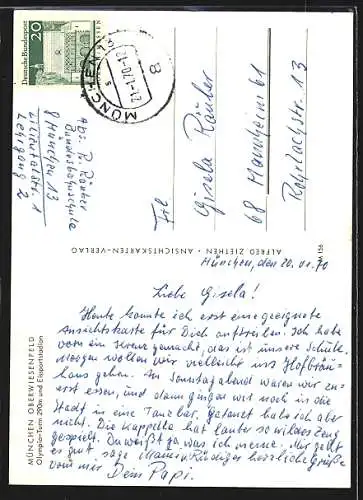 München, den 20.01.70
Liebe Gisela!
Heute konnte ich erst eine geeignete
Ansichtskarte für Dich auftreiben. Ich habe
vorn ein Kreuz gemacht, das ist unsere Schule.
Morgen wollen wir vielleicht ins Hofbräu-
haus gehen. Am Sonntagabend waren wir zu-
erst essen, und dann gingen wir noch in die
Stadt in eine Tanzbar. Getanzt habe ich aber
nicht. Die Kappelle hat lauter so wildes Zeug
gespielt. Du weißt ja, was ich meine. Mir geht
es gut, sage Mami u. Rüdiger herzliche Grüße
von mir Dein Papi.
MÜNCHEN OBERWIESENFELD
Olympia-Turm 290m und Eissportstadion
ALFRED ZIETHEN • ANSICHTSKARTEN-VERLAG
M 156
Abs. R. Räuber
Bundesbahnschule
8 München 13
Lilientalstr. 1
Lehrgang 2
Frl.
Gisela Räuber
68 Mannheim 61
Rohrlachstr. 13
Deutsche Bundespost
20
MÜNCHEN
21-1.70-12
8